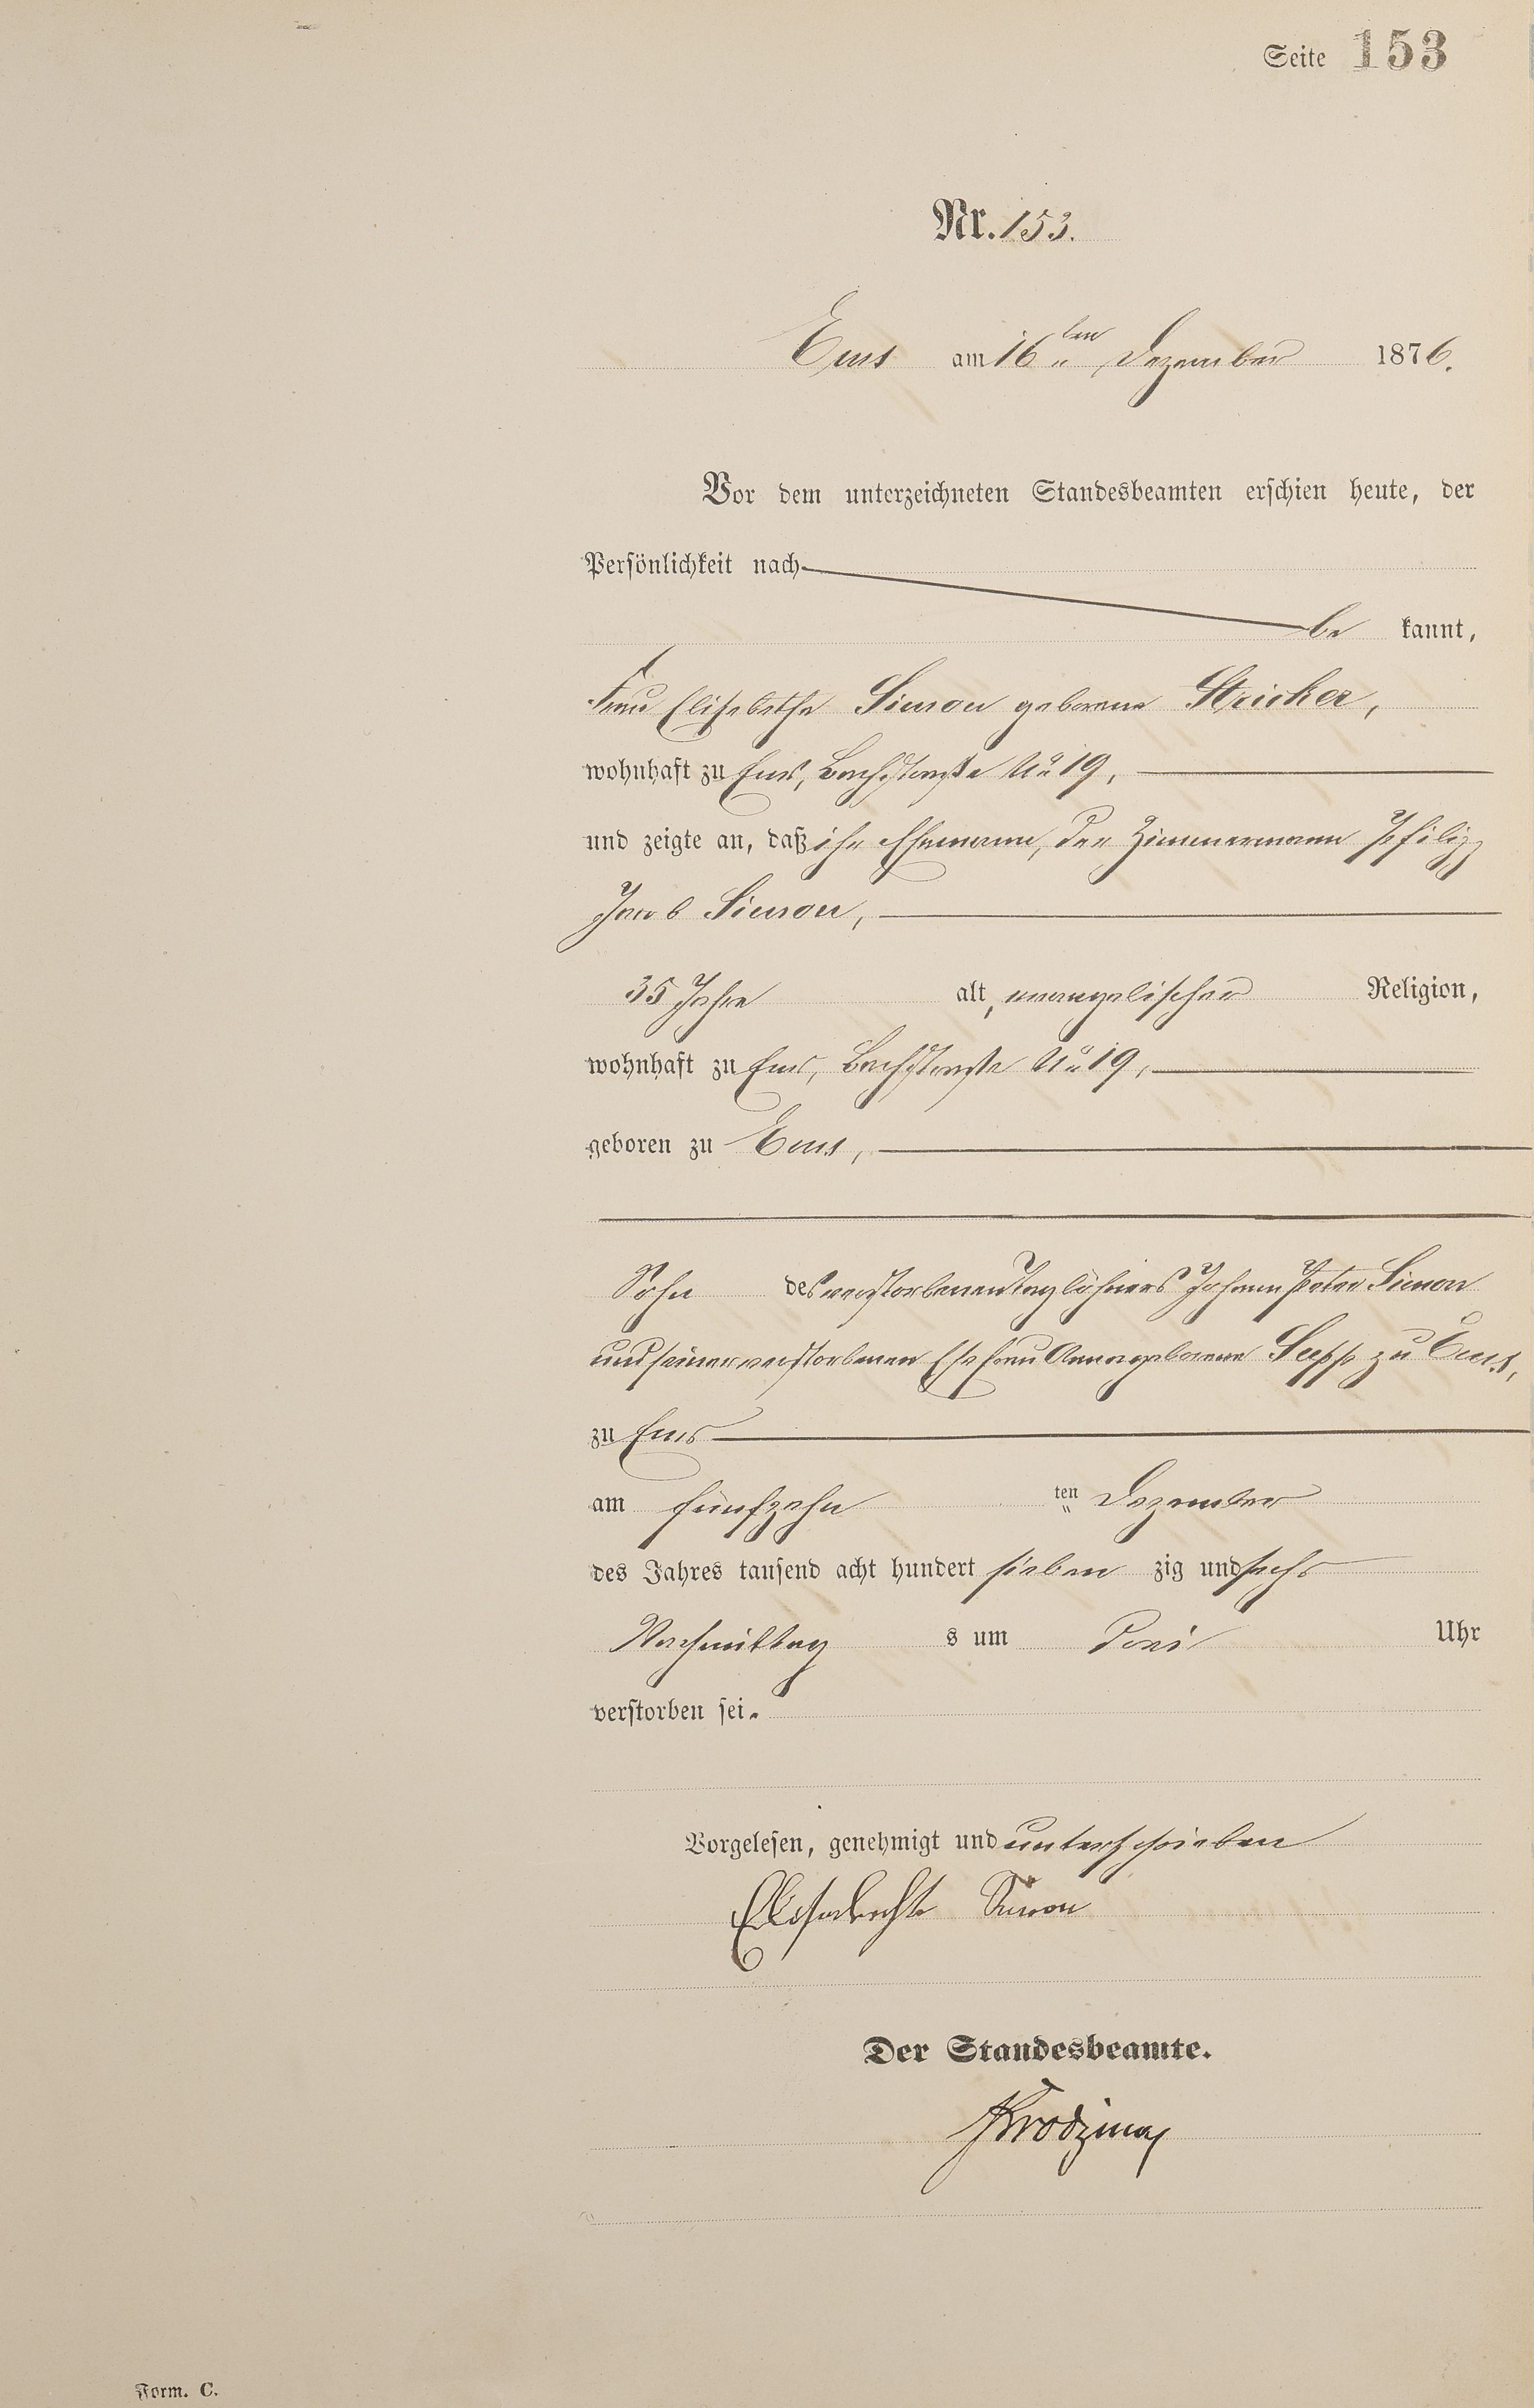 Seite 153
Nr. 153.
Ems am 16ten Dezember 1876.
Vor dem unterzeichneten Standesbeamten erschien heute, der
Persönlichkeit nach
be kannt,
Frau Elisabetha Simon geborene Stricker,
wohnhaft zu Ems, Bachstraße No 19,
und zeigte an, daß ihr Ehemann, der Zimmermann Philipp
Jacob Simon,
35 Jahre alt, evangelischer Religion,
wohnhaft zu Ems, Bachstraße No 19,
geboren zu Ems,
Sohn des verstorbenen Taglöhners Johann Peter Simon
und seiner verstorbenen Ehefrau Anna geborene Supp zu Ems,
zu Ems
am fünfzehn ten Dezember
des Jahres tausend acht hundert sieben zig und sechs
Nachmittag s um drei Uhr
verstorben sei.
Vorgelesen, genehmigt und unterschrieben
Elisabethe Simon
Der Standesbeamte.
Form. C.